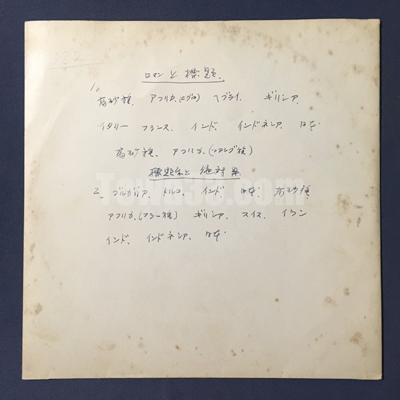 ロマンと標題.
1. 高砂族、アフリカ.(ピグミ) ヘブライ、ギリシア、
イタリー フランス、インド、インドネシア、日本
高砂族、アフリカ.(
標題念と絶対系
2. ブルガリア、トルコ、インド 日本 高砂族
アフリカ.( ギリシア、スイス、イラン
インド、インドネシア、日本